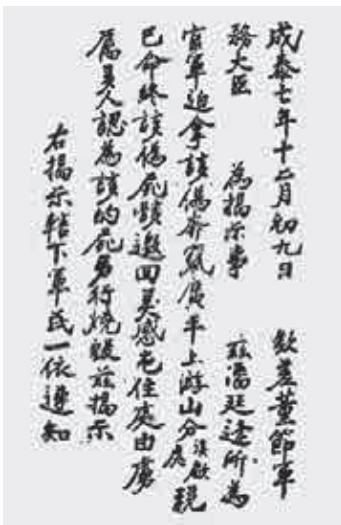 成泰七年十二月初九日 欽差董節軍
務大臣 為揭示事 茲潘廷逢所為
官軍追拿該偽奔竄廣平上游山分
已命終該偽屍骸邀回美感屯住處由
屬美人認為該的屍另行燒毀茲揭示
右揭示轄下軍民一依遵知